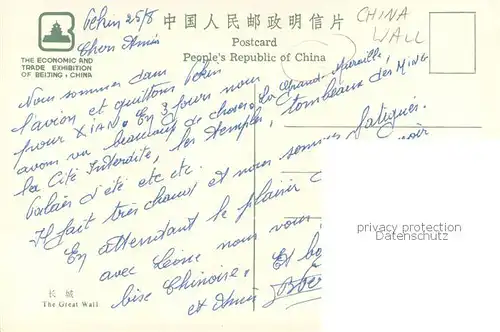 中国人民邮政明信片
Postcard
People's Republic of China
CHINA
WALL
THE ECONOMIC AND
TRADE EXHIBITION
OF BEIJING, CHINA
Pekin 25/8
Chers Amis
Nous sommes dans
l'avion et quittons Pekin
pour XIAN. En 3 jours nous
avons vu beaucoup de choses: La Grande Muraille,
la Cité Interdite, les temples, tombeaux des MING
Palais d'été etc etc.
Il fait très chaud et nous sommes fatigués.
En attendant le plaisir
avec Léone nous vous
bise Chinoise.
Et
et Amis
privacy protection
Datenschutz
长城
The Great Wall